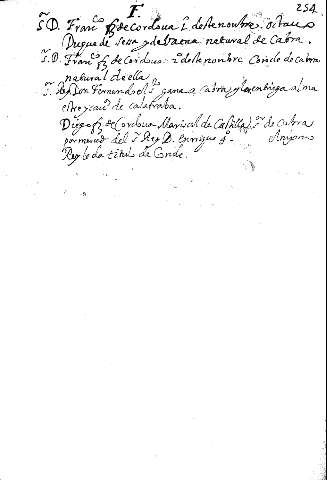 F.
254
S.^r D. Fran^co fz de Cordoua 1 deste nonbre. octauo
Duque de Sesa y de Baena natural de Cabra.
S.^r D. Fran^co fz de Cordoua 2 deste nonbre Conde de Cabra
natural de ella.
S.^r Rey Don Fernando el S^to gana a Cabra y la entriega al ma
estre y cau^s de calatraba.
Diego fz de Cordoua Mariscal de Castilla S^r de Cabra
por merced del S^r Rey D. Enrique 4º.
Rey le da titulo de Conde.